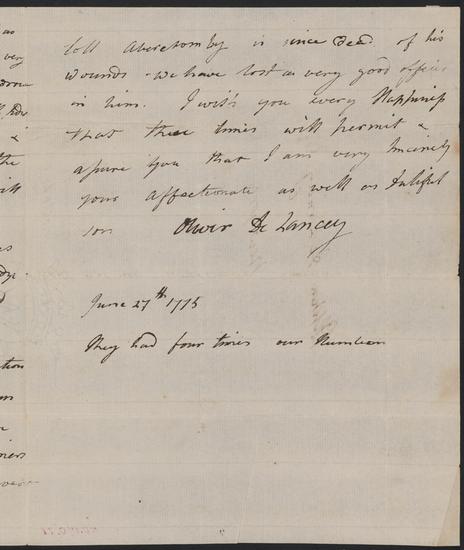 Coll Abercromby is since Dead of his
wounds - we have lost a very good officer
in him. I wish you every Happiness
that these times will permit &
assure you that I am very Sincerely
your affectionate as well as dutiful
son Oliver De Lancey
June 27th 1775
they had four times our Numbers